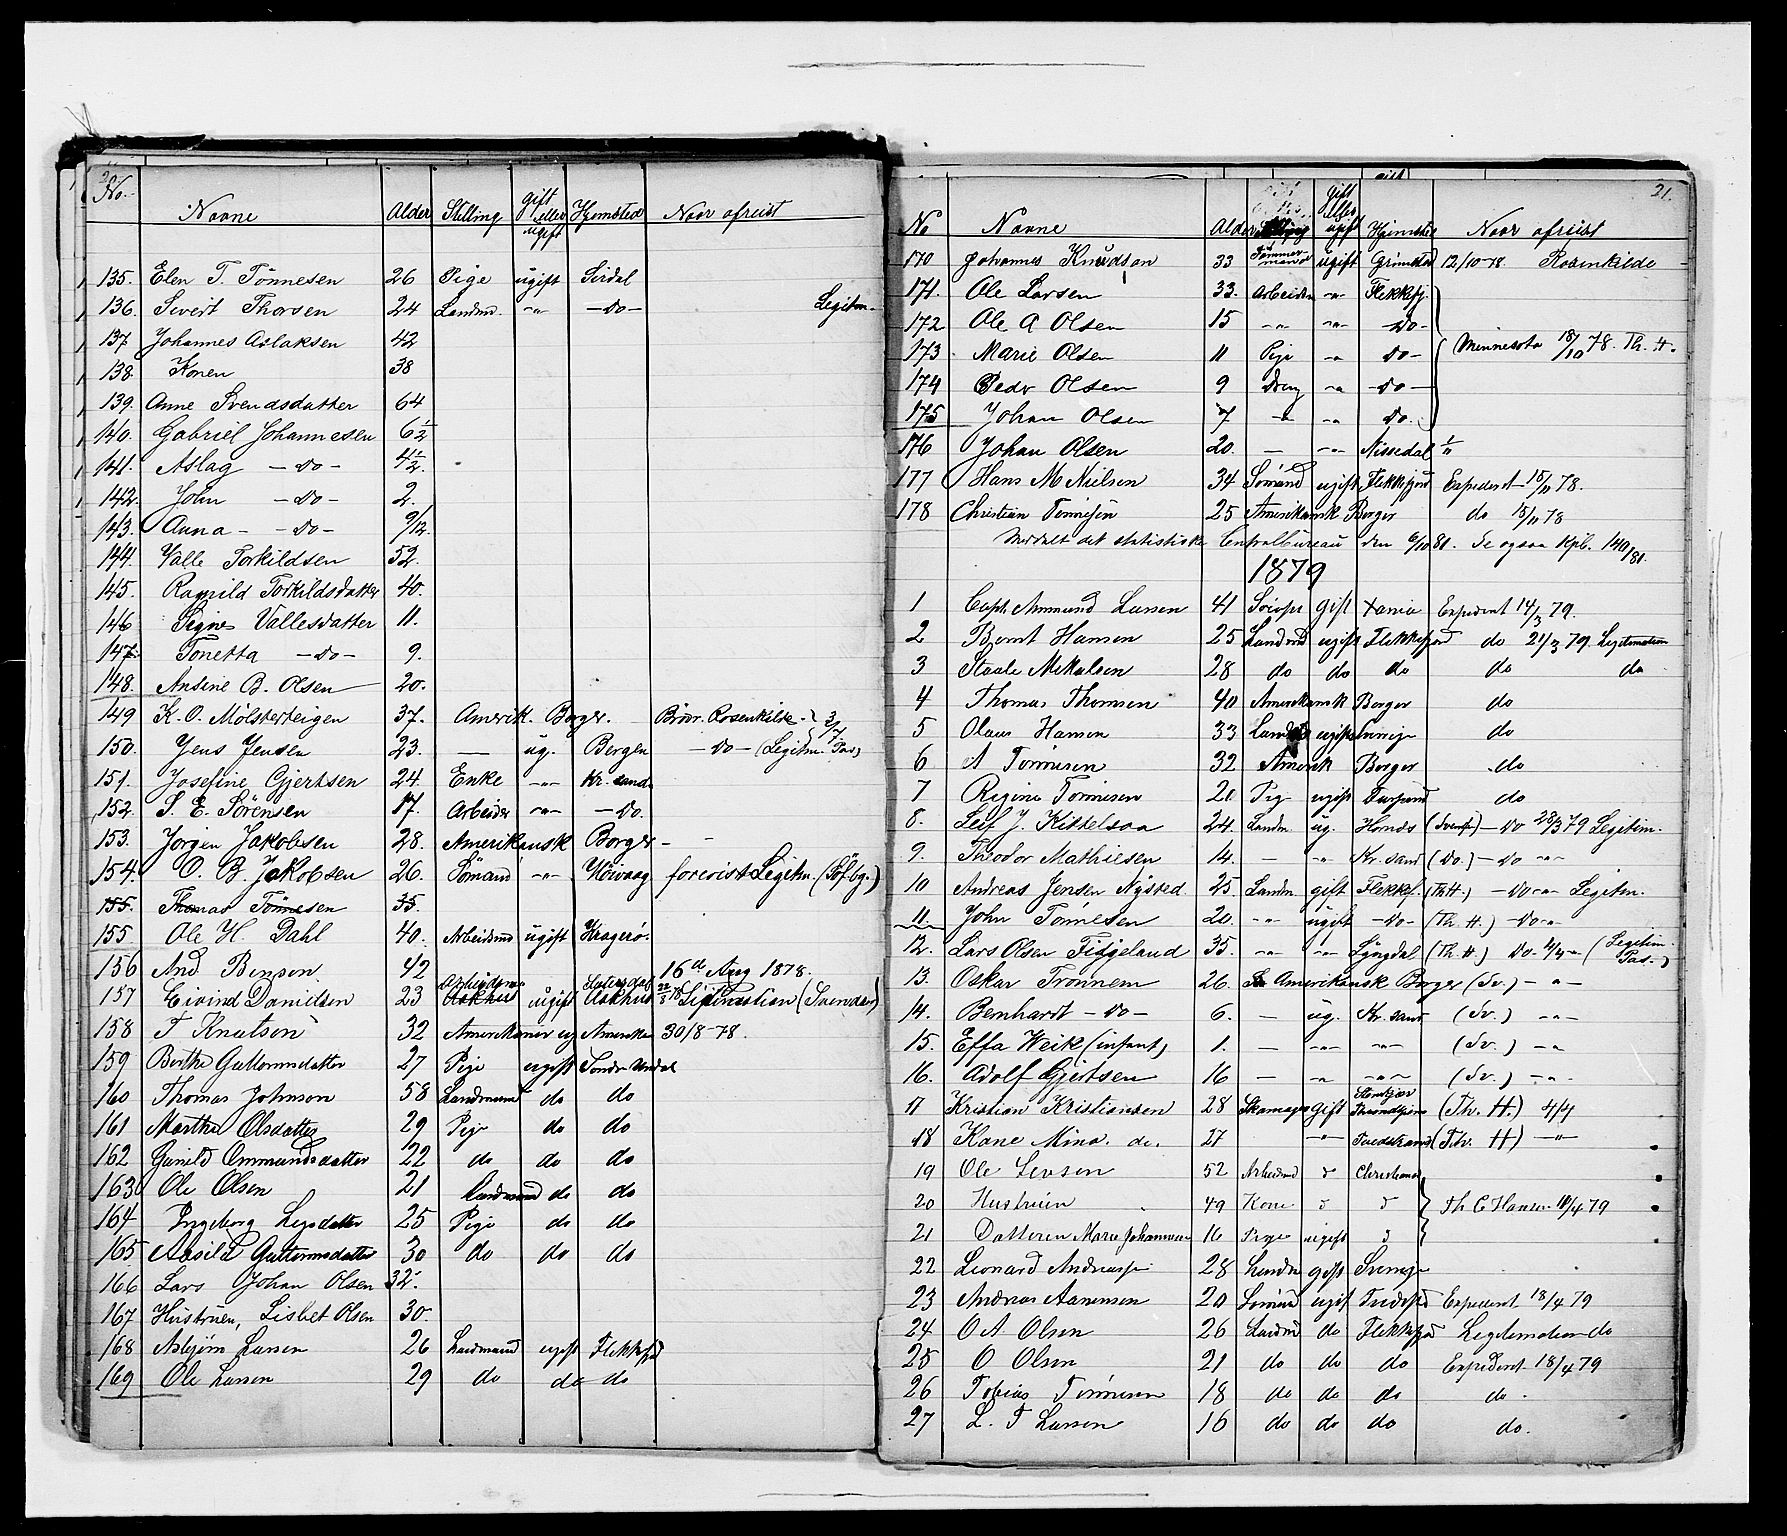 20
No. Navne Alder Stilling gift eller ugift Hjemsted Naar afreist
135. Elen T. Tönnesen 26 Pige ugift Sirdal
136. Sivert Thorsen 24 Landm. -"- -Do- Legitm.
137 Johannes Aslaksen 42
138. Konen 38
139. Anne Svendsdatter 64
140. Gabriel Johannesen 6½
141. Aslag -Do- 4½.
142. John -Do- 2.
143. Anna -Do- 9/12.
144. Valle Torkildsen 52.
145. Ragnild Torkildsdatter 40.
146 Signe Vallesdatter 11.
147. Tonetta -Do- 9.
148. Andrine B. Olsen 20.
149 K. O. Mölsterteigen 37. Amerik. Borger. Brödr. Rosenkilde 3/7
150. Jens Jensen 23. — ug. Bergen -Do- (Legitm. Pas)
151. Josefine Gjertsen 24. Enke -"- Kr.sand
152. S. E. Sörensen 17. Arbeider -"- -Do.
153. Jörgen Jakobsen 28. Amerikansk Borger -
154. O. B. Jakobsen 26. Sömand -"- Höivaag forevist Legitm. (Söf.bg.)
155. Thomas Tönnesen 35.
155 Ole H. Dahl 40. Arbeidsmd ugift Kragerö.
156 And Benson 42 16de Aug 1878.
157 Eivind Danielsen 23 Arbeidsm ugift Sætersdal Legitimation (Svendsen)
158 T Knutson 32 Amerikaner ug Amerika 30/8-78.
159 Berthe Guttormsdatter 27 Pige ugift Söndre Undal
160 Thomas Johnson 58 Landmand do do
161 Marthe Olsdatter 29 Pige do do
162 Gunild Ommundsdatter 22 do do do
163 Ole Olsen 21 Landmand do do
164 Ingeborg Lijsdatter 25 Pige do do
165. Aasild Guttormsdatter 30 do do do
166 Lars Johan Olsen 32.
167 Hustruen, Lisbet Olsen 30.
168 Asbjörn Larsen 26 Landmand ugift Flekkefjd
169 Ole Larsen 29 do do do
21.
No Navne Alder Stilling gift eller ugift Hjemsted Naar afreist
170 Johannes Knudsøn 33 Tömmermand ugift Grimstad 12/10-78. Rosenkilde
171. Ole Larsen 33. Arbeider -"- Flekkefj.
172 Ole A Olsen 15 -"- -"- -Do-
173. Marie Olsen 11 Pige -"- Do- Minnesota 18/10 78. Th. H.
174 Peder Olsen 9 Dreng -"- -Do-
175 Johan Olsen 7 -"- -"- Do.
176 Johan Olsen 20. — -"- Nissedal 1/11
177 Hans M Nielsen 34 Sömand ugift Flekkefjord Expederet 15/11 78.
178 Christian Tönnesen 25 Amerikansk Borger do 15/11 78
Meddelt det statistiske Centralbureau den 6/10 81. Se ogsaa Kpb. 140/81.
1879
1 Capt. Ammund Larsen 41 Skipsf gift Xania Expederet 14/3 79.
2 Bernt Hansen 25 Landmd ugift Flekkefjord do 21/3 79. Legitimation
3 Staale Mikalsen 28 do do do do do
4 Thomas Thomsen 40 Amerikansk Borger do
5 Olaus Hansen 33 Landmd ugift Sverige do
6 A Tönnesen 32 Amerik Borger do
7 Regine Tönnesen 20 Pige ugift Farsund do
8. Leif J. Kittelsaa 24. Landm. ug. Hornæs (Svends.) -Do 28/3 79 Legitim.
9. Theodor Mathiesen 14. — -"- Kr.sand (Do.) -Do -"-
10 Andreas Jensen Nysted 25. Landm. gift Flekkef. (Th H.) -Do -"- Legitm.
11. John Tönnesen 20. -"- ugift -Do- (Th. H.) -Do-"-
12. Lars Olsen Fidjeland 35. -"- -"- Lyngdal (Th. H.) Do- 4/4 -"- (Legitim. Pas.)
13. Oskar Tronnem 26. Amerikansk Borger (Sv.) -"-
14. Bernhardt -Do- 6. — ug. Kr.sand (Sv.) -"-
15. Effa Weik (infant) 1. — -"- -"- (Sv.) -"-
16. Adolf Gjertsen 16 — -"- -"- (Sv.) -"-
17 Kristian Kristiansen 28 Skomager gift Stenkjær Throndhjem (Th. H.) 4/4
18 Kone Mina do. 27 -"- Tvedestrand (Th. H) -"-
19 Ole Sevsen 52 Arbeidsmd d Christiansd
20 Hustruen 49 Kone d d Th. C. Hansen 10/4 79
21 Datteren Marie Johannesen 16 Pige ugift d
22 Leonard Andreasse 28 Landm gift Sverige
23 Andreas Aanensen 20 Sömand ugift Tvedestd Expederet 18/4 79
24 O A Olsen 26 Landmd do Flekkefjd Legitimation do
25 O Olsen 21 do do do Expederet 18/4 79
26 Tobias Tönnesen 18 do do do do.
27 L. T Larsen 16 do do do do.